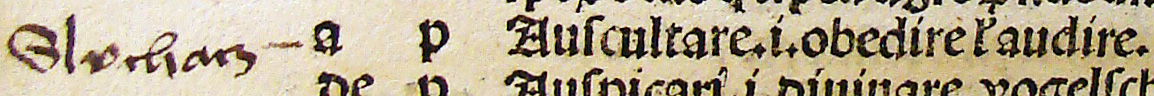 Slvchacz a p Auscultare .i. obedire ł audire.
de p Auspicari .i. diuinare vogelsch